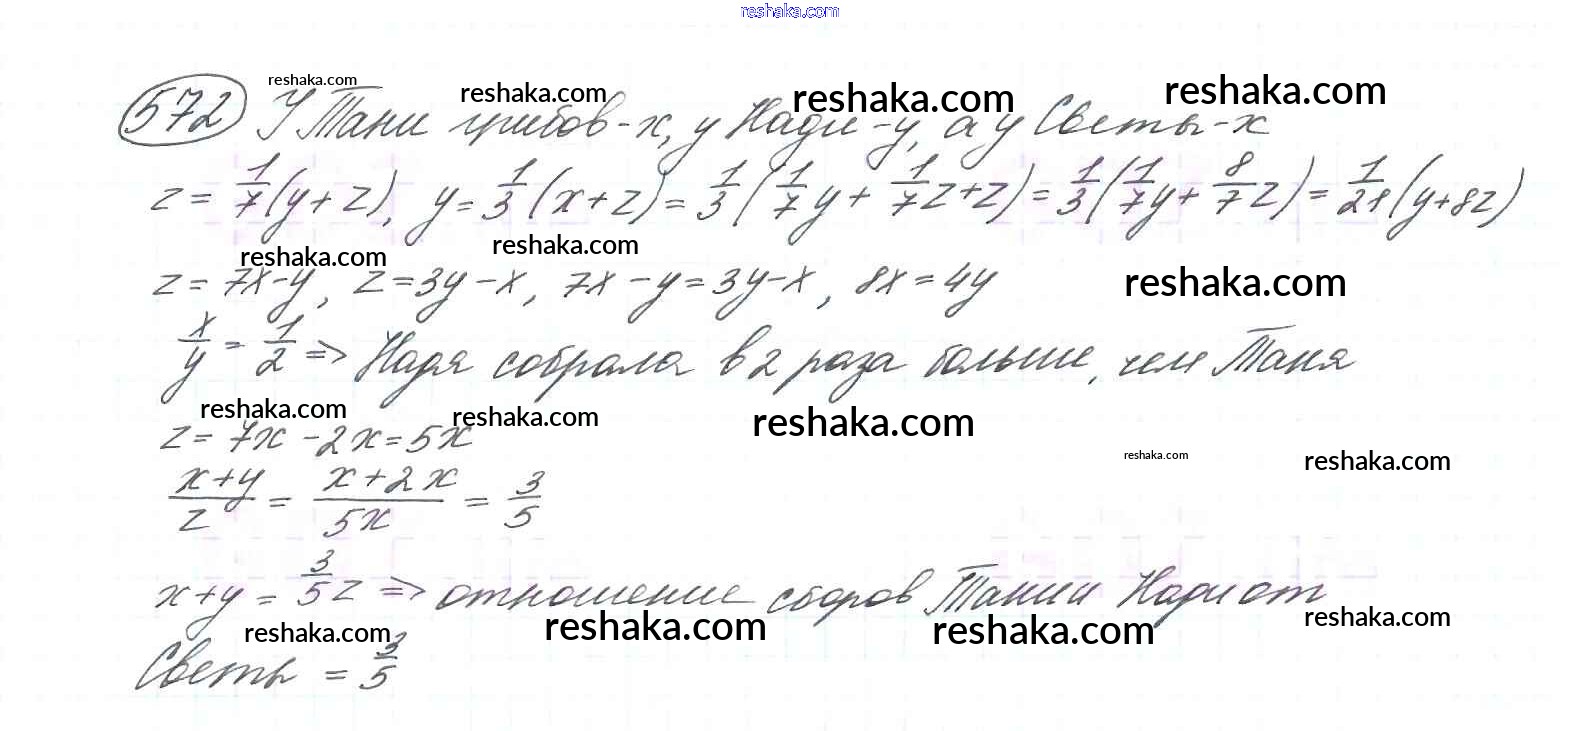 reshaka.com
reshaka.com reshaka.com reshaka.com reshaka.com
572 У Тани грибов - x, у Нади - y, а у Светы - x
z = 1/7 (y + z), y = 1/3 (x + z) = 1/3 (1/7 y + 1/7 z + z) = 1/3 (1/7 y + 8/7 z) = 1/21 (y + 8z)
reshaka.com reshaka.com reshaka.com
z = 7x - y, z = 3y - x, 7x - y = 3y - x, 8x = 4y
x/y = 1/2 => Надя собрала в 2 раза больше, чем Таня
reshaka.com reshaka.com reshaka.com
z = 7x - 2x = 5x
reshaka.com reshaka.com
(x + y)/z = (x + 2x)/5x = 3/5
x + y = 3/5 z => отношение сборов Тани и Нади от
reshaka.com reshaka.com reshaka.com reshaka.com
Светы = 3/5